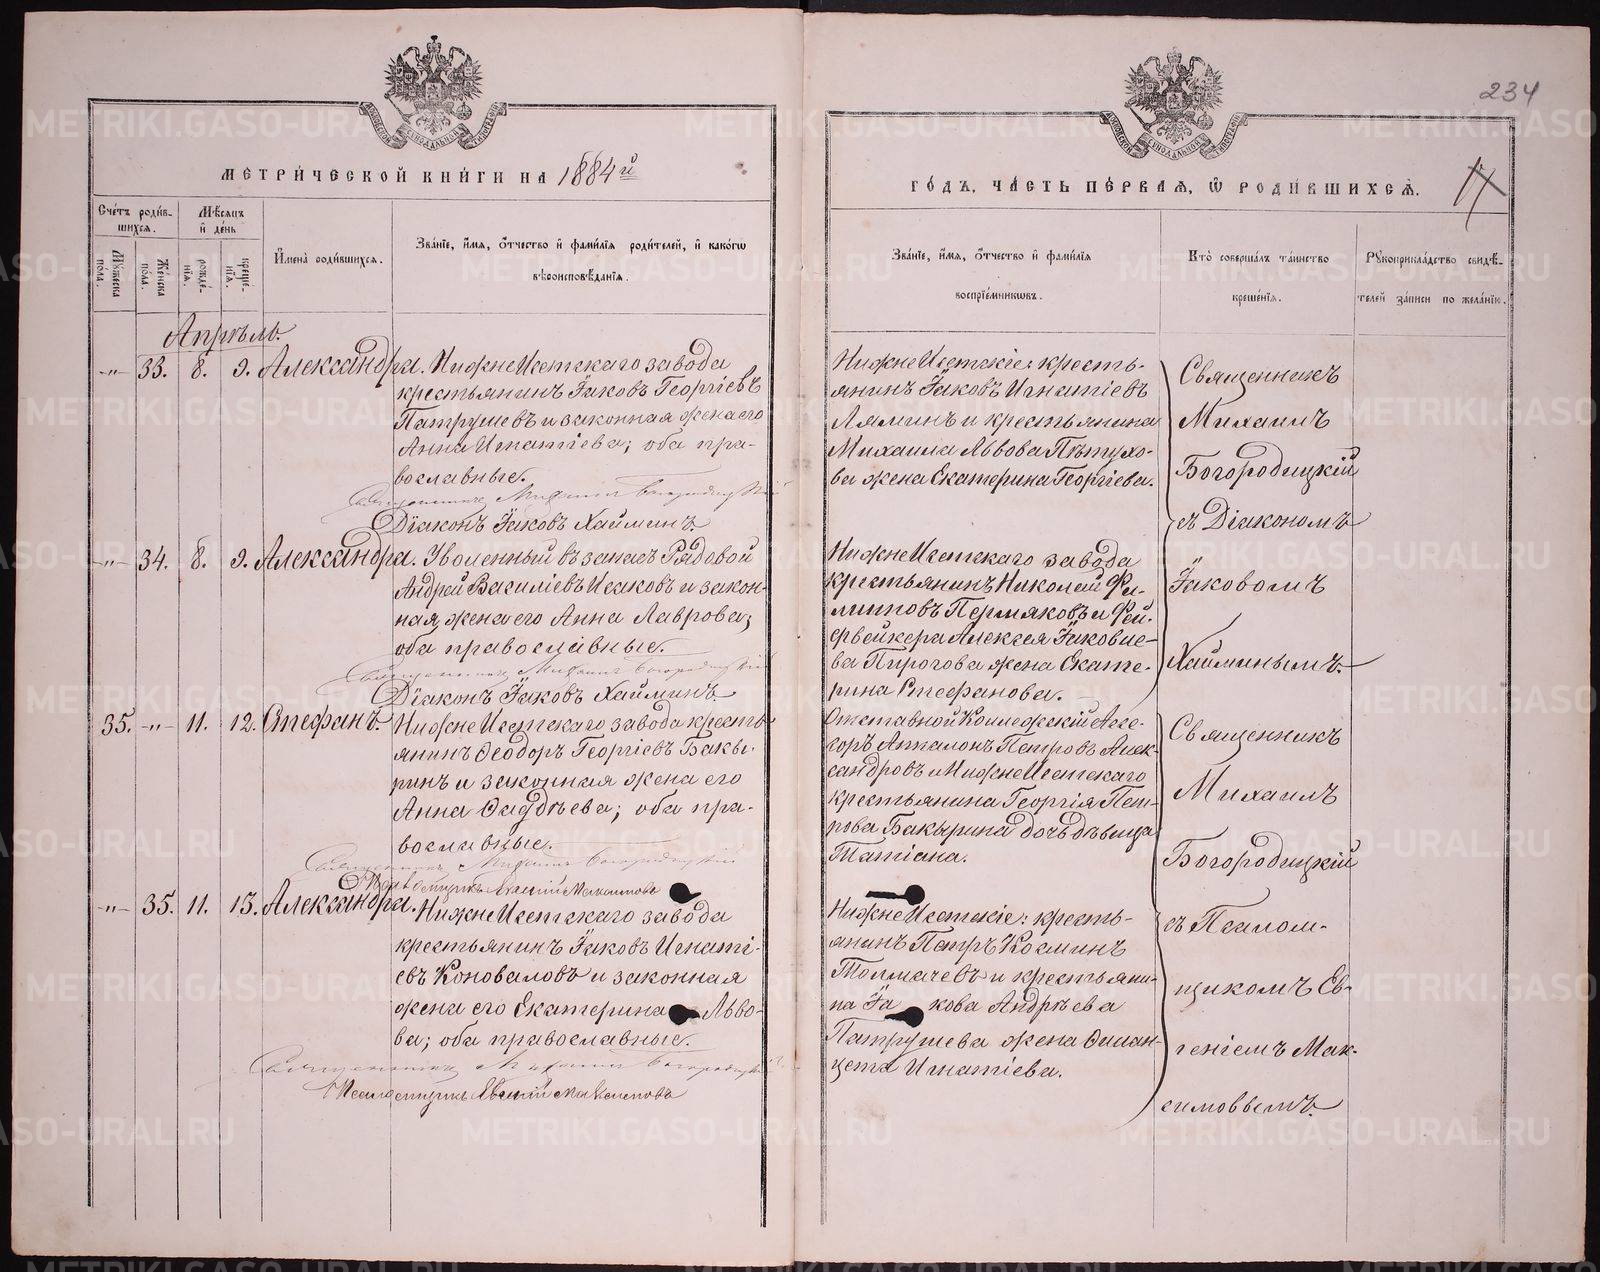 234
МЕТРИ́ЧЕСКОЙ КНИ́ГИ НА 1884й
ГО́ДЪ, ЧА́СТЬ ПЕ́РВАѦ, Ѿ РОДИ́ВШИХСѦ.
17
Сче́тъ роди́вшихсѧ.
Мꙋ́жеска пола.
Же́нска пола.
Мѣ́сѧцъ и҆ де́нь
рожде́нїѧ.
креще́нїѧ.
И҆мена̀ роди́вшихсѧ.
Зва́нїе, и҆́мѧ, ѻ҆́тчество и҆ фами́лїѧ роди́телей, и҆ како́гѡ
вѣроисповѣ́данїѧ.
Зва́нїе, и҆́мѧ, ѻ҆́тчество и҆ фами́лїѧ
воспрїе́мникѡвъ.
Кто̀ соверша́лъ та́инство
креще́нїѧ.
Рꙋкоприкла́дство свидѣ́-
телей за́писи по жела́нїю.
Апрѣль.
-"- 33. 8. 9. Александра.
НижнеИсетскаго завода
крестьянинъ Іаковъ Георгіевъ
Патрушевъ и законная жена его
Анна Игнатіева; оба пра-
вославные.
Священникъ Михаилъ Богородицкій
Діаконъ Іаковъ Хайминъ.
НижнеИсетскіе: кресть-
янинъ Іаковъ Игнатіевъ
Ляминъ и крестьянина
Михаила Львова Пѣтухо-
ва жена Екатерина Георгіева.
Священникъ
Михаилъ
Богородицкій
съ Діакономъ
-"- 34. 8. 9. Александра.
Уволенный въ запасъ Рядовой
Андрей Василіевъ Исаковъ и закон-
ная жена его Анна Лаврова;
оба православные.
Священникъ Михаилъ Богородицкій
Діаконъ Іаковъ Хайминъ.
НижнеИсетскаго завода
крестьянинъ Николай Фи-
липповъ Пермяковъ и Фей-
ерверкера Алексея Іаковле-
ва Пирогова жена Екате-
рина Стефанова.
Іаковомъ
Хайминымъ.
35. -"- 11. 12. Стефанъ.
НижнеИсетскаго завода кресть-
янинъ Ѳеодоръ Георгіевъ Бакы-
ринъ и законная жена его
Анна Ѳаддѣева; оба пра-
вославные.
Священникъ Михаилъ Богородицкій
Псаломщикъ Евгеній Максимовъ
Отставной Коллежскій Ассе-
соръ Апполонъ Петровъ Алек-
сандровъ и НижнеИсетскаго
крестьянина Георгія Пет-
рова Бакырина дочь дѣвица
Татіана.
Священникъ
Михаилъ
Богородицкій
-"- 35. 11. 13. Александра.
НижнеИсетскаго завода
крестьянинъ Іаковъ Игнаті-
евъ Коноваловъ и законная
жена его Екатерина Льво-
ва; оба православные.
Священникъ Михаилъ Богородицкій
Псаломщикъ Евгеній Максимовъ
НижнеИсетскіе: кресть-
янинъ Петръ Косминъ
Толмачевъ и крестьяни-
на Іакова Андрѣева
Патрушева жена Филан-
цета Игнатіева.
съ Псалом-
щикомъ Ев-
геніемъ Мак-
симовымъ.
METRIKI.GASO-URAL.RU